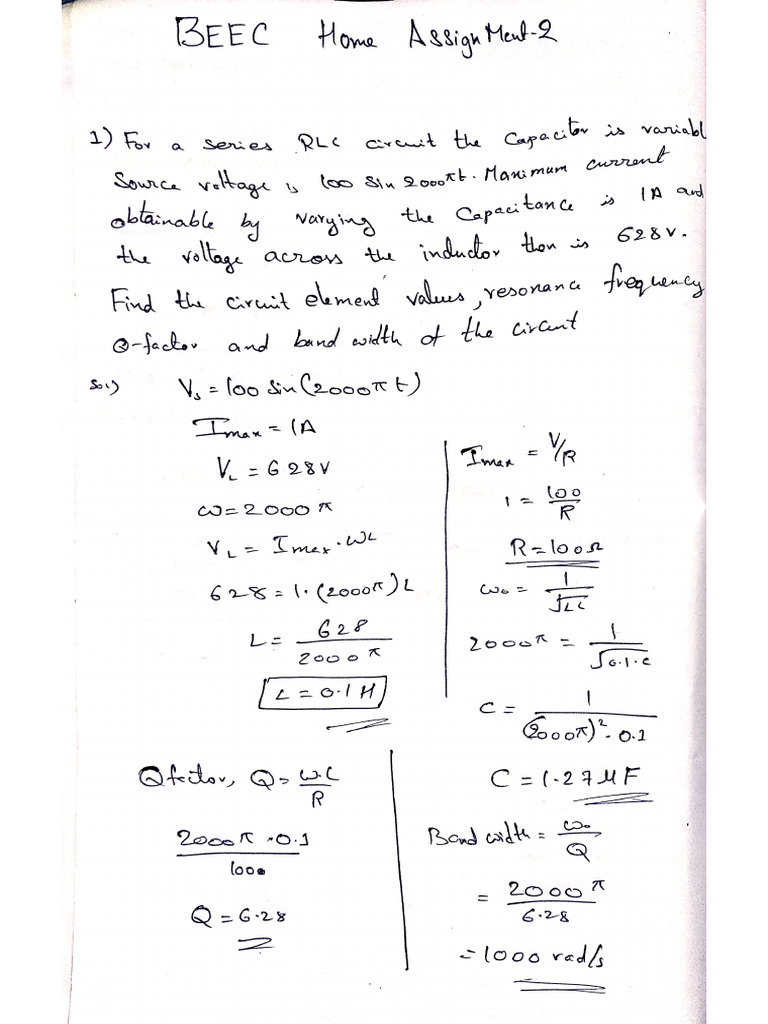 BEEC Home Assignment-2
1) For a series RLC circuit the Capacitor is variabl
Source voltage is 100 sin 2000πt. Maximum current
obtainable by varying the Capacitance is 1A and
the voltage across the inductor then is 628V.
Find the circuit element values, resonance frequency
Q-factor and band width of the circuit
Sol)
Vs = 100 sin(2000πt)
Imax = 1A
VL = 628V
ω = 2000π
VL = Imax·ωL
628 = 1·(2000π)L
L = 628/2000π
L = 0.1H
Imax = V/R
1 = 100/R
R = 100Ω
ω₀ = 1/√LC
2000π = 1/√0.1·C
C = 1/(2000π)²·0.1
C = 1.27μF
Q factor, Q = ω·L/R
2000π·0.1/100
Q = 6.28
Band width = ω₀/Q
= 2000π/6.28
= 1000 rad/s